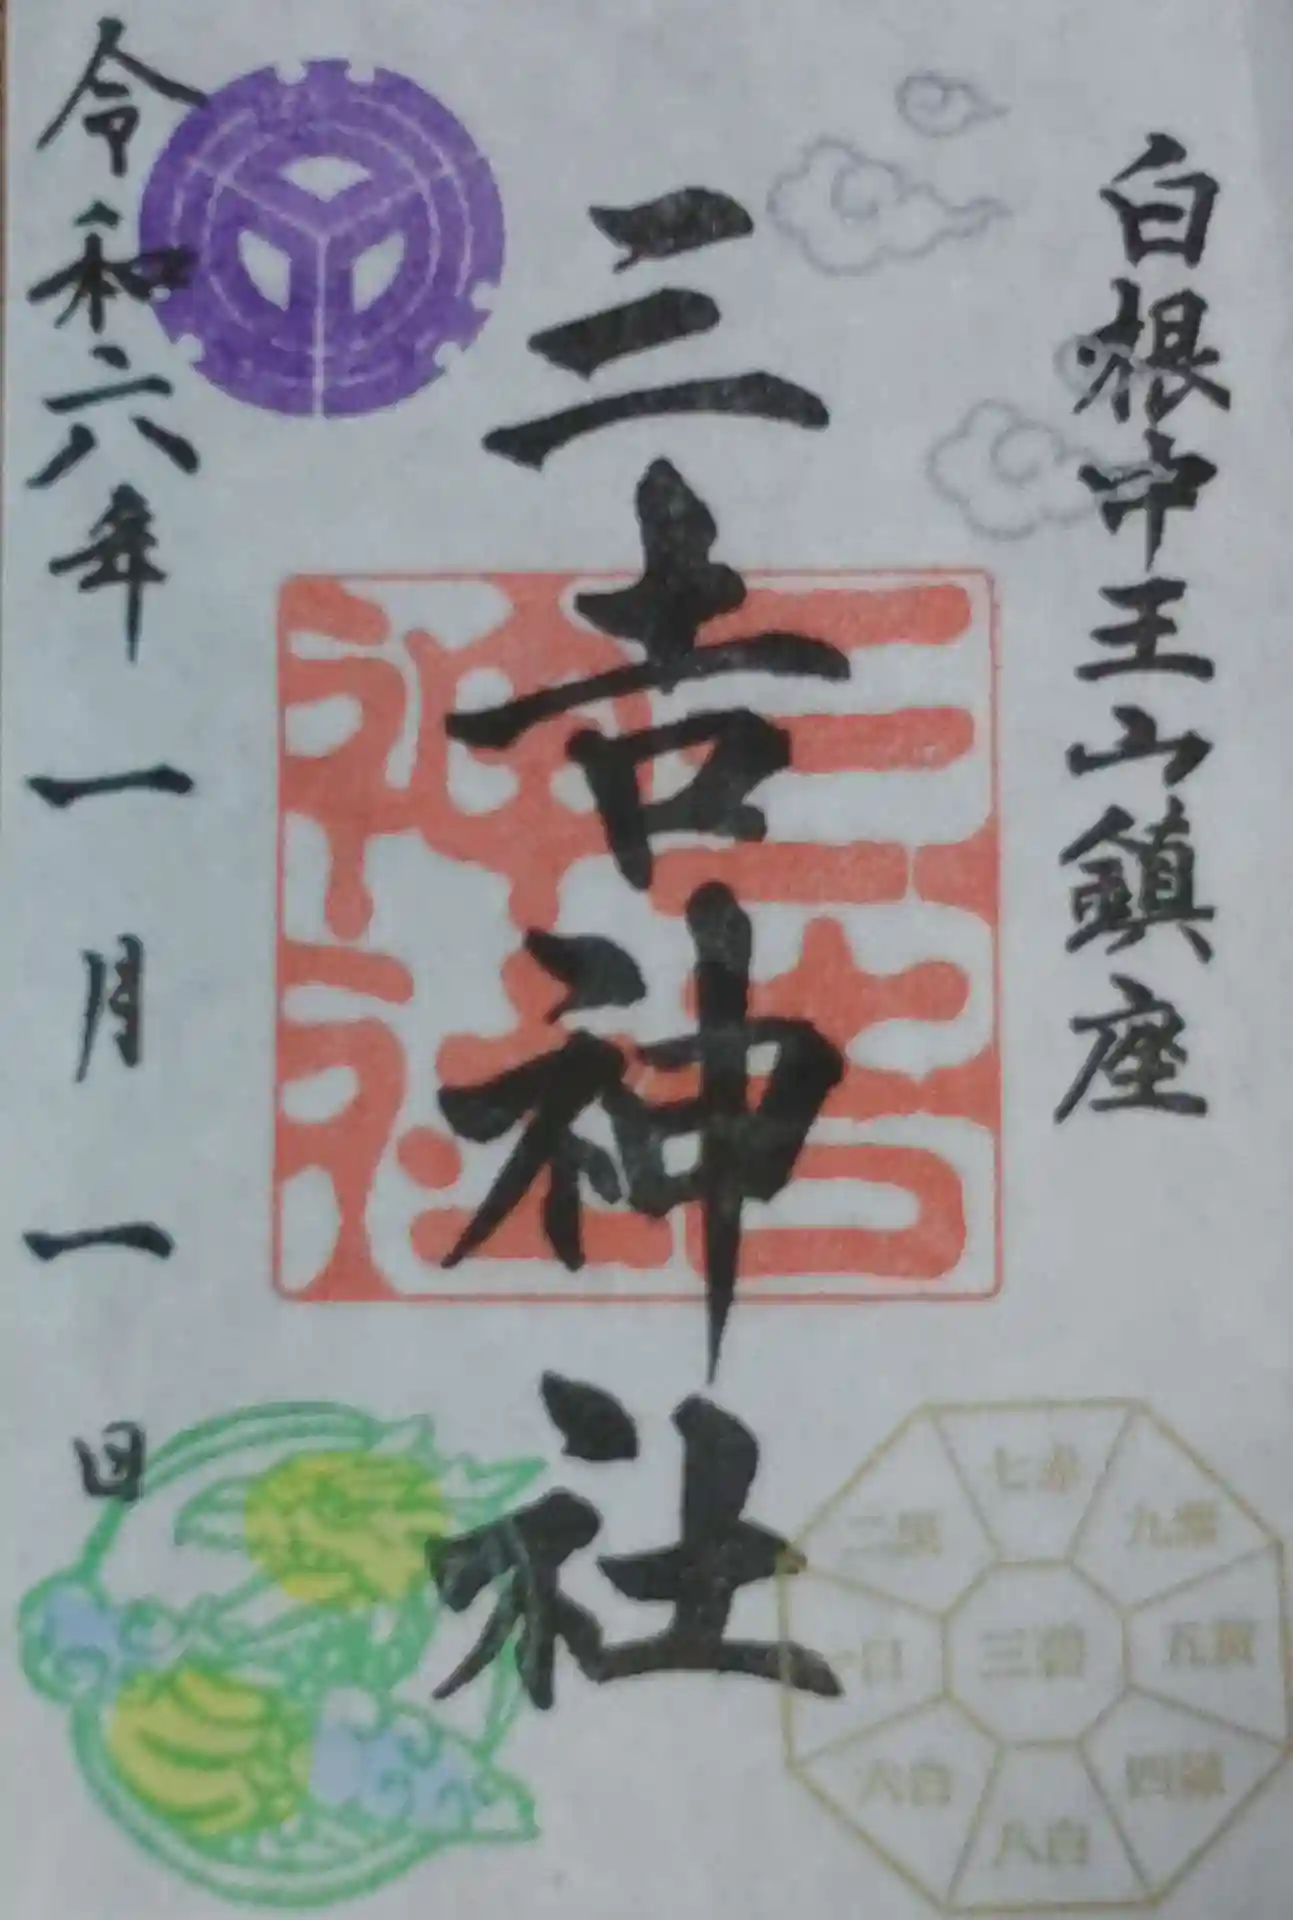 白根中王山鎮座
三吉神社
令和六年一月一日
三吉神社
七赤
二黒
九紫
三碧
五黄
一白
六白
四緑
八白